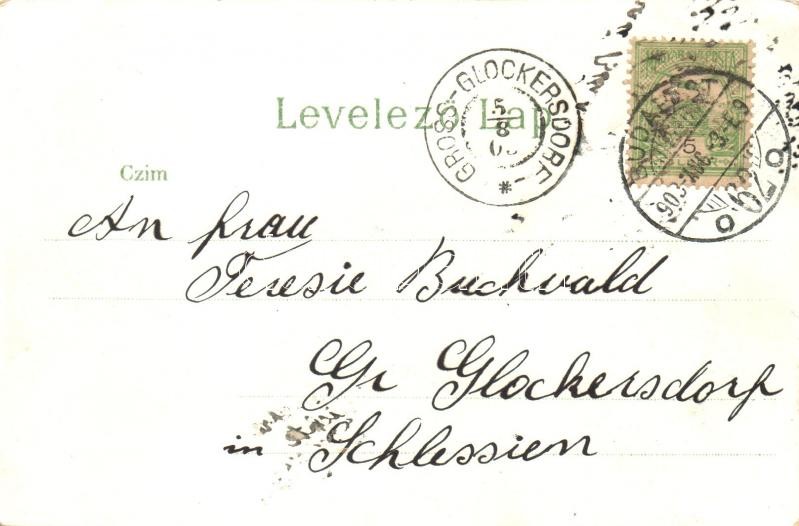 Levelező Lap
GROSS-GLOCKERSDORF
5
8
BUDAPEST
Czim
An frau
Teresie Buchvald
Gr Glockersdorf
in Schlessien